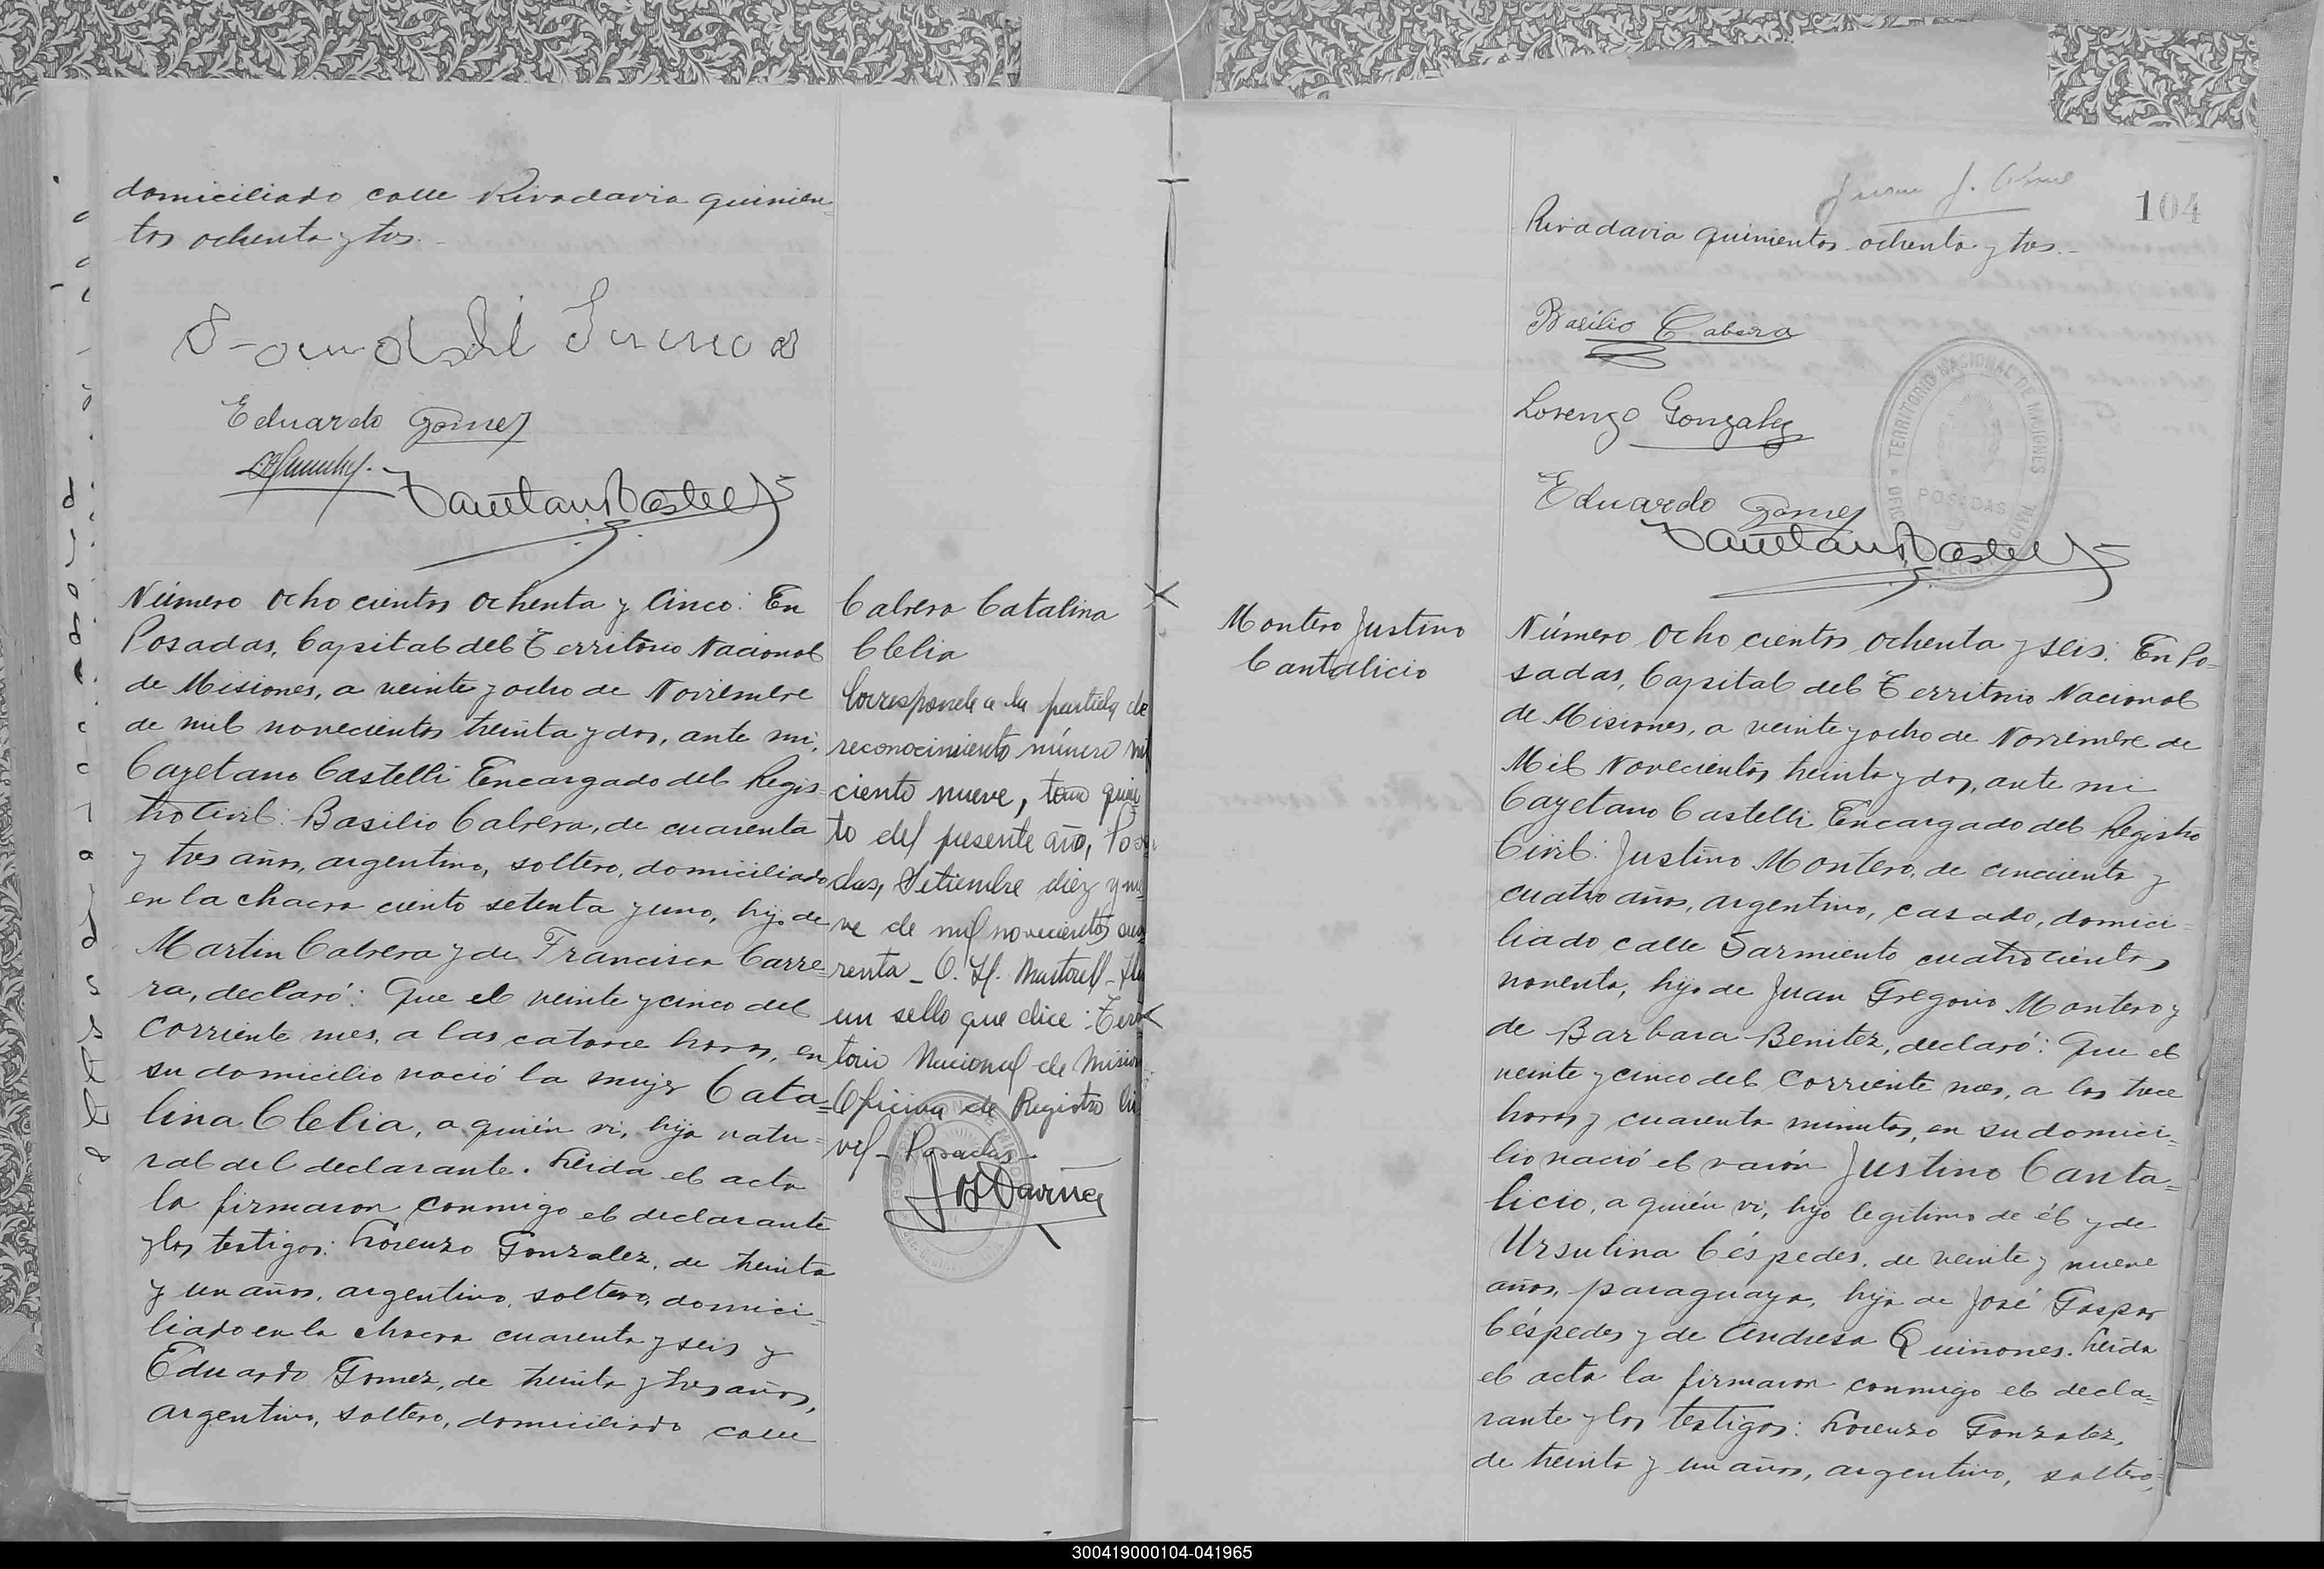 domiciliado calle Rivadavia quinien=
tos ochenta y tres.-
Eduardo Gomez
Cayetano Castelli
Número Ochocientos Ochenta y Cinco: En
Posadas, Capital del Territorio Nacional
de Misiones, a veinte y ocho de Noviembre
de mil novecientos treinta y dos, ante mi,
Cayetano Castelli Encargado del Regis=
tro Civil: Basilio Cabrera, de cuarenta
y tres años, argentino, soltero, domiciliado
en la chacra ciento setenta y uno, hijo de
Martin Cabrera y de Francisca Carre=
ra, declaró: Que el veinte y cinco del
corriente mes, a las catorce horas, en
su domicilio nació la mujer Cata=
lina Clelia, a quién vi, hija natu=
ral del declarante. Leida el acta
la firmaron conmigo el declarante
y los testigos: Lorenzo Gonzalez, de treinta
y un años, argentino, soltero, domici=
liado en la chacra cuarenta y seis y
Eduardo Gomez, de treinta y tres años,
argentino, soltero, domiciliado calle
Cabrera Catalina
Clelia
Corresponde a la partida de
reconocimiento número mil
ciento nueve, tomo quin
to del presente año, Posa
das, Setiembre diez y nue
ve de mil novecientos cua
renta - O. H.
un sello que dice: Terri
torio Nacional de Misiones
Oficina de Registro Ci
vil - Posadas -
Rivadavia quinientos ochenta y tres.-
104
Basilio Cabrera
Lorenzo Gonzalez
TERRITORIO NACIONAL DE MISIONES
POSADAS
Eduardo Gomez
Cayetano Castelli
Montero Justino
Cantalicio
Número Ochocientos Ochenta y seis: En Po=
sadas, Capital del Territorio Nacional
de Misiones, a veinte y ocho de Noviembre de
Mil Novecientos treinta y dos, ante mi
Cayetano Castelli Encargado del Registro
Civil: Justino Montero, de cincuenta y
cuatro años, argentino, casado, domici=
liado calle Sarmiento cuatrocientos
noventa, hijo de Juan Gregorio Montero y
de Barbara Benitez, declaró: Que el
veinte y cinco del corriente mes, a las trece
horas y cuarenta minutos, en su domici=
lio nació el varón Justino Canta=
licio, a quién vi, hijo legitimo de él y de
Ursulina Céspedes, de veinte y nueve
años, paraguaya, hija de José Gaspar
Céspedes y de Andresa Quiñones. Leida
el acta la firmaron conmigo el decla=
rante y los testigos: Lorenzo Gonzalez,
de treinta y un años, argentino, soltero,
300419000104-041965